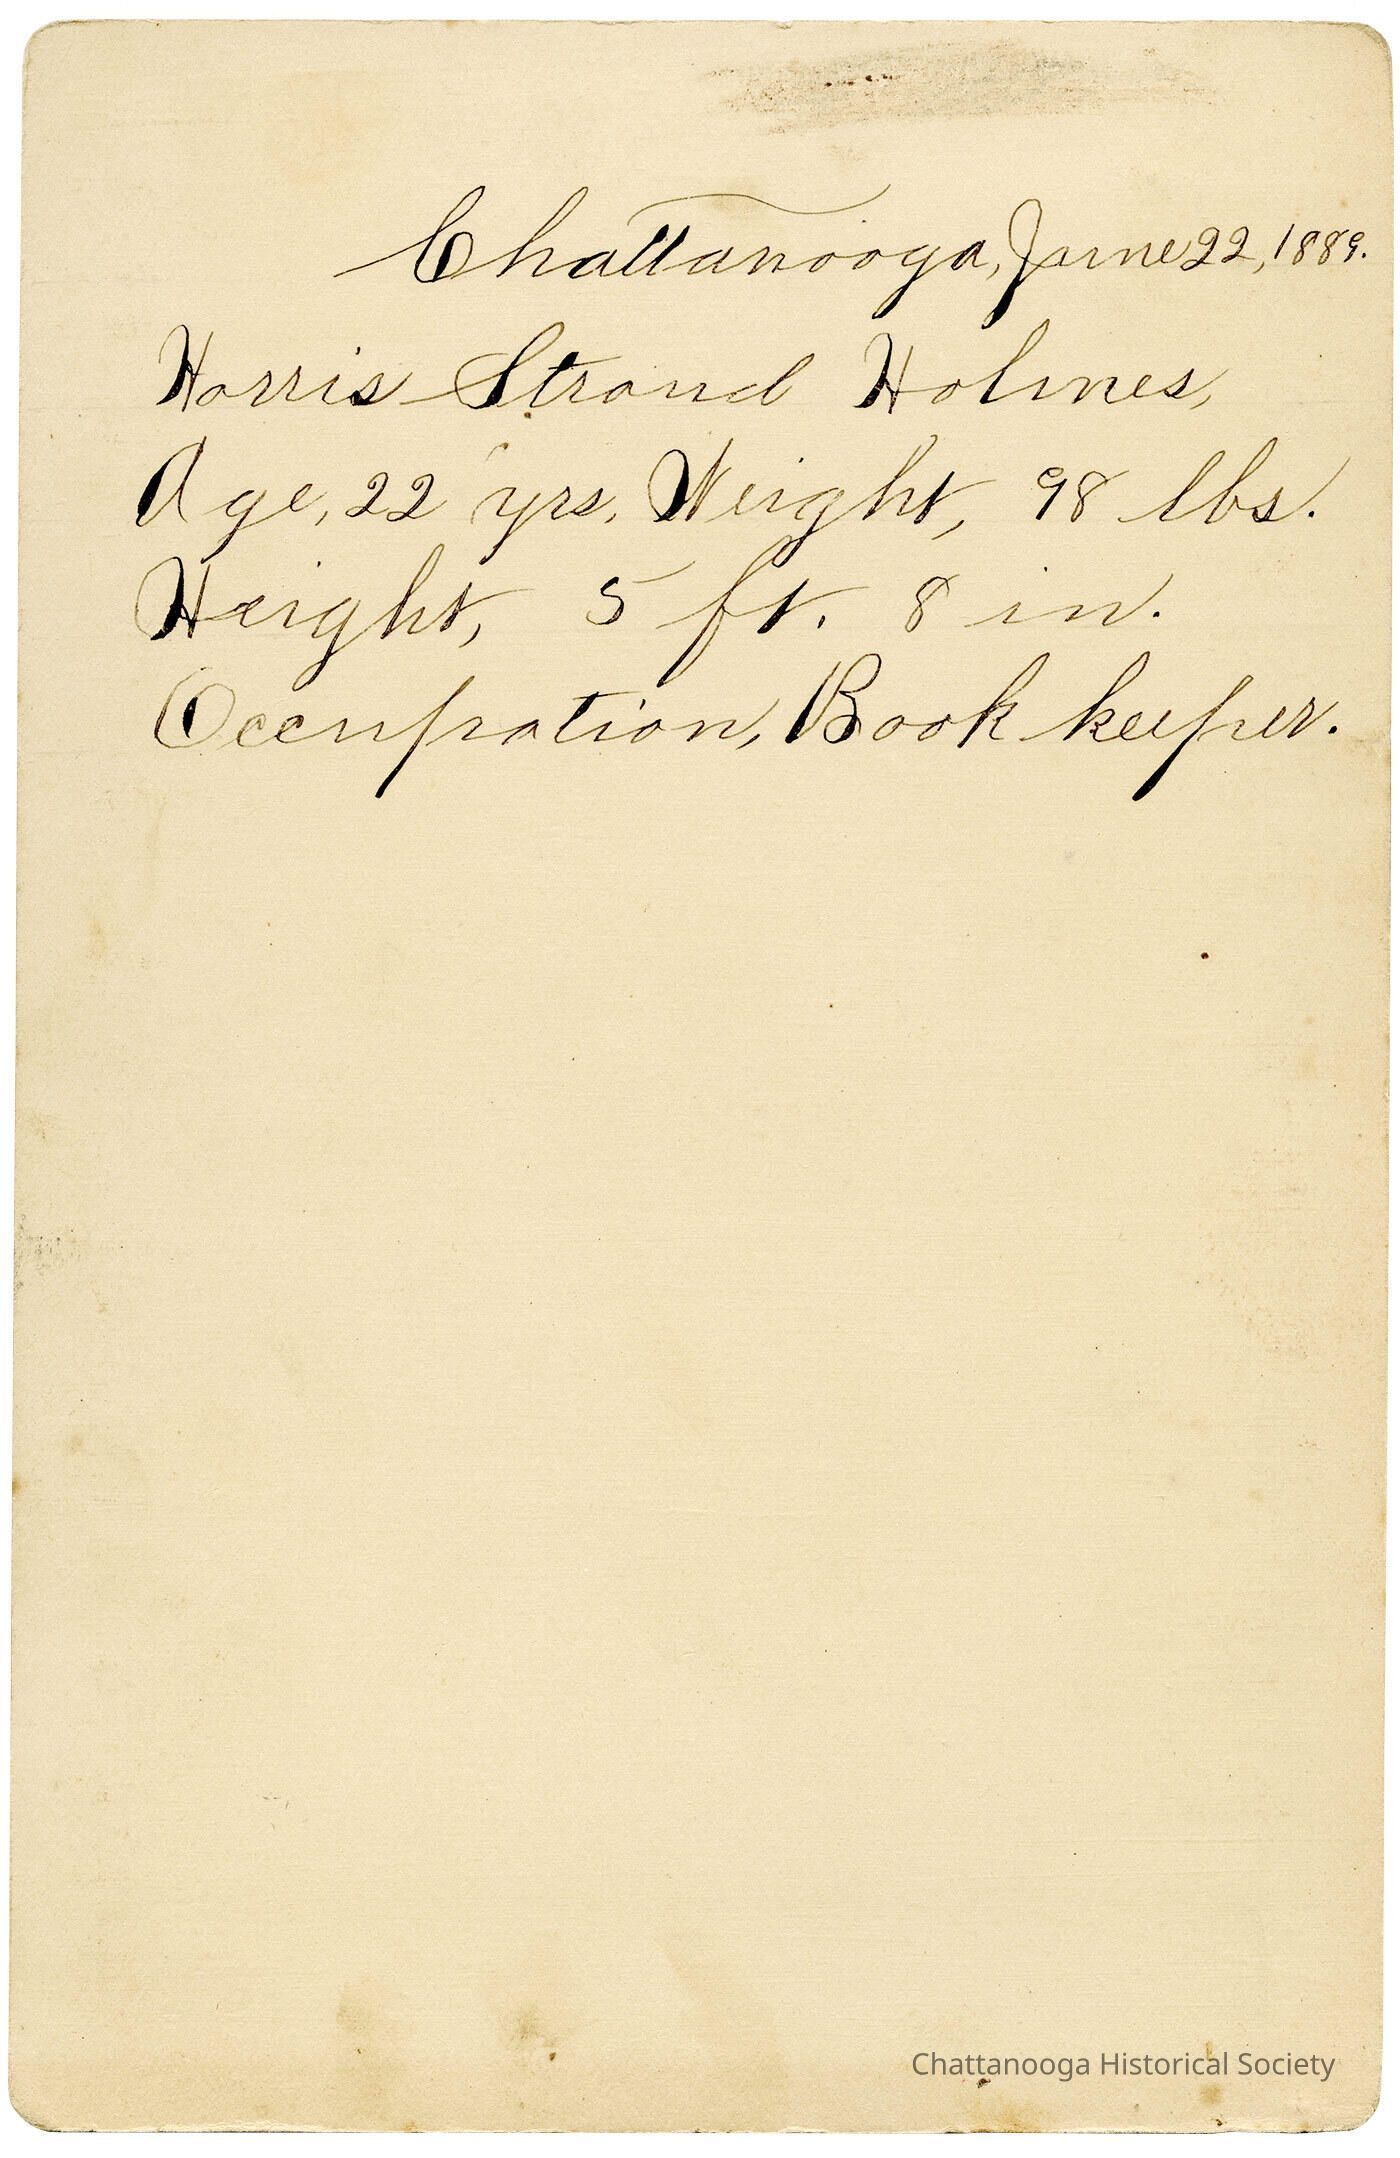 Chattanooga, June 22, 1889.
Harris Strond Holmes,
Age, 22 yrs, Weight, 98 lbs.
Height, 5 ft. 8 in.
Occupation, Book keeper.
Chattanooga Historical Society